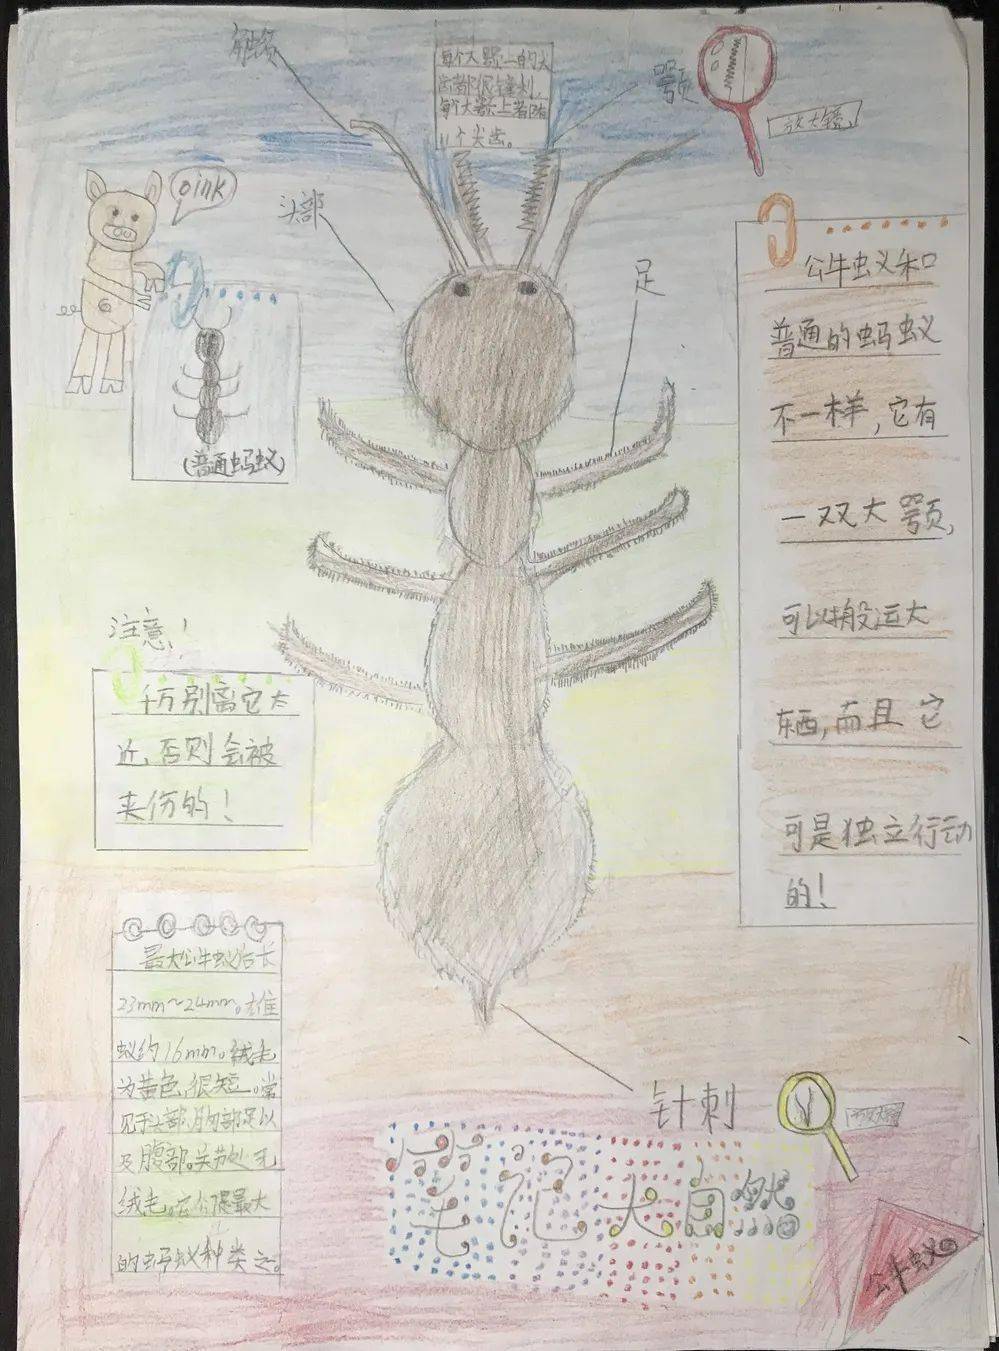 触须
每个大颚上的大
齿都很锋利,
每个大颚上著有
11个尖齿。
颚
放大镜
oink
头部
足
6
(普通蚂蚁)
公牛蚁和
普通的蚂蚁
不一样,它有
一双大颚,
可以般运大
东西,而且它
可是独立行动
的!
注意!
千万别离它太
近,否则会被
夹伤的!
最大公牛蚁后长
23mm~24mm。雄
蚁约16mm。绒毛
为黄色,很短。常
见于头部、胸部足以
及腹部。关节处无
绒毛。它们是最大
的蚂蚁种类之。
针刺
放大镜
笔记大自然
公牛蚁